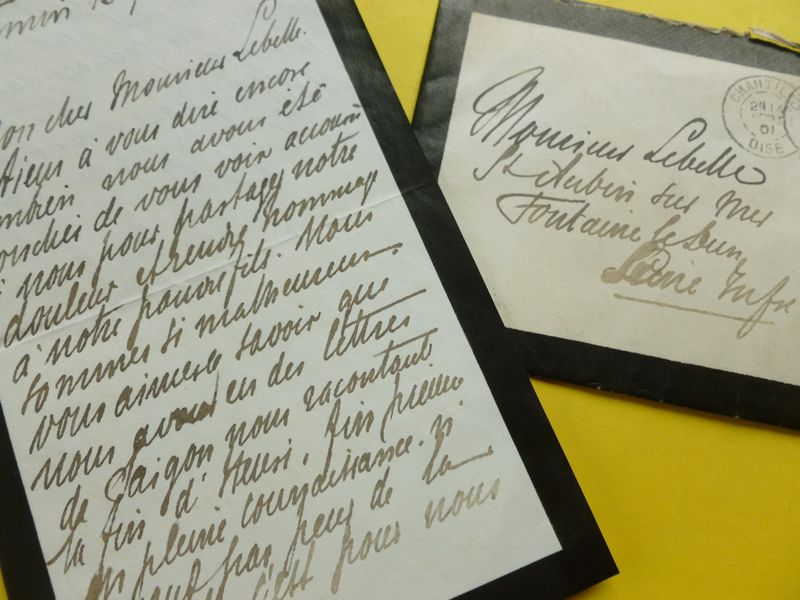 on cher Monsieur Lebelle.
tiens à vous dire encore
mbien nous avons été
ouchés de vous voir accourir
à nous pour partager notre
douleur et rendre hommage
à notre pauvre fils. Nous
sommes si malheureux.
vous aimerez savoir que
nous avons eu des lettres
de Saigon nous racontant
la fin d'Henri, fin
en pleine connaissance.
pas peur de la
c'est pour nous
Monsieur Lebelle
St Aubin sur Mer
Fontaine le Dun
Seine Infre
CHANTIL
24
01
OISE